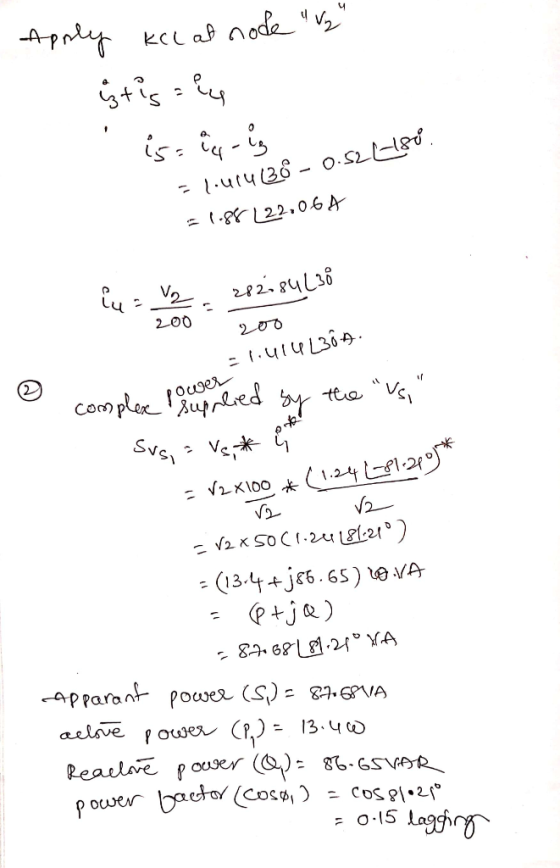 Apply KCL at node "V2"
i3 + i5 = i4
i5 = i4 - i3
= 1.414∠30° - 0.52∠-180°.
= 1.88∠22.06A
i4 = V2/200 = 282.84∠30°/200
= 1.414∠30°A.
② complex power supplied by the "Vs1"
Svs1 = Vs1 * i1*
= √2×100/√2 * (1.24∠-81.21°/√2)*
= √2×50(1.24∠81.21°)
= (13.4 + j86.65) VA
= (P + jQ)
= 87.68∠81.21° VA
Apparant power (S1) = 87.68VA
active power (P1) = 13.4W
Reactive power (Q1) = 86.65VAR
power factor (cosø1) = cos81.21°
= 0.15 lagging